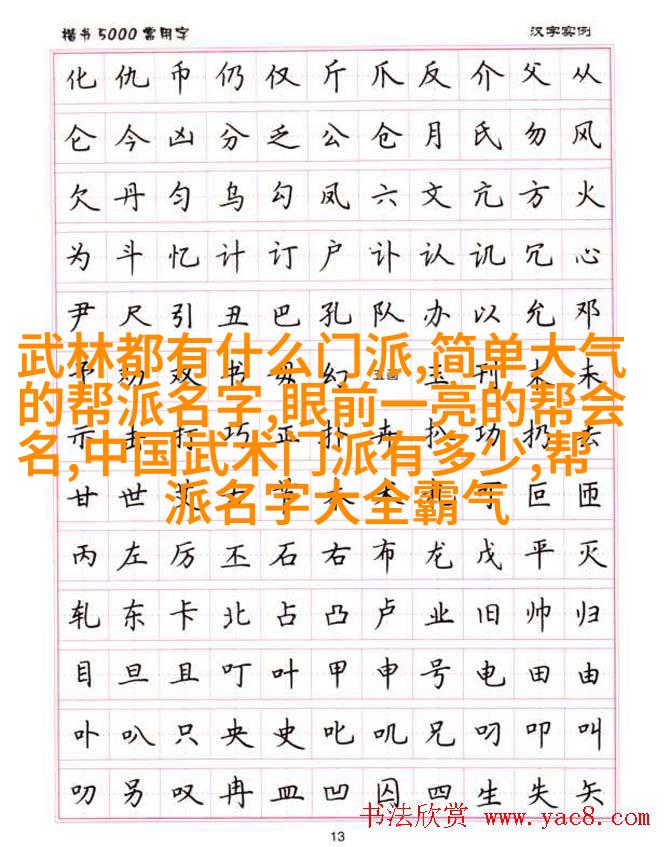 楷书5000常用字 汉字实例
化 仇 币 仍 仅 斤 爪 反 介 父 从
仑 今 凶 分 乏 公 仓 月 氏 勿 风
欠 丹 匀 乌 勾 凤 六 文 亢 方 火
为 斗 忆 计 订 户 讣 认 讥 冗 心
尹 尺 引 丑 巴 孔 队 办 以 允 邓
武林都有什么门派,简单大气
予 劝 双 书 毋 幻 五画 玉 刊 末 未
的帮派名字,眼前一亮的帮会
示 击 打 巧 正 扑 卉 扒 功 扔 去
名,中国武术门派有多少,帮
甘 世 可 叵 匝
派名字大全霸气
丙 左 厉 丕 石 右 布 龙 戊 平 灭
轧 东 卡 北 占 凸 卢 业 旧 帅 归
目 旦 且 叮 叶 甲 申 号 电 田 由
卟 叭 只 央 史 叱 叽 兄 叼 叩 叫
叨 另 叹 冉 皿 凹 囚 四 生 失 矢
书法欣赏 www.yac8.com
13